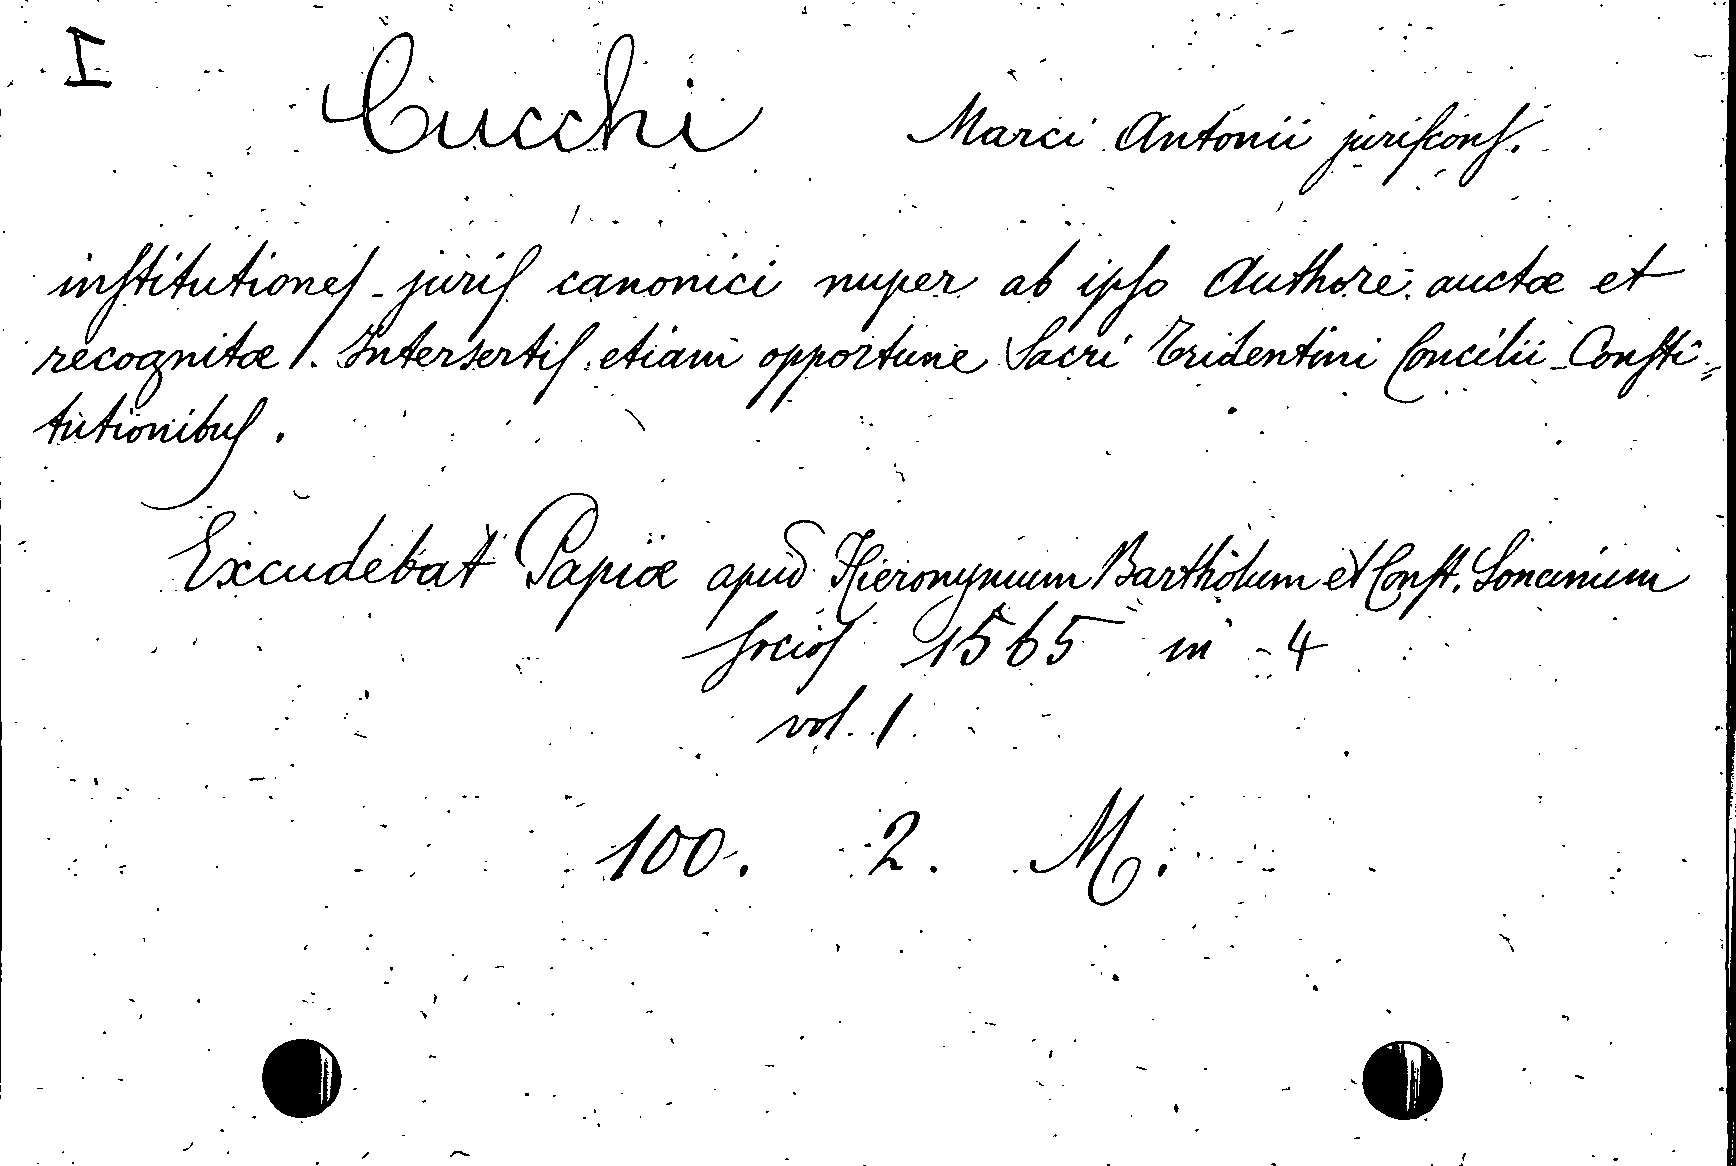 I
Cucchi Marci Antonii juriſconſ.
inſtitutioneſ juriſ canonici nuper ab ipſo Authore auctæ et
recognitæ. Intersertiſ etiam opportune Sacri Tridentini Concilii Conſti=
tutionibuſ.
Excudebat Papiæ apud Hieronymum Bartholum et Conſt. Soncinium
ſocioſ 1565 in - 4
vol. 1
100. 2. M.